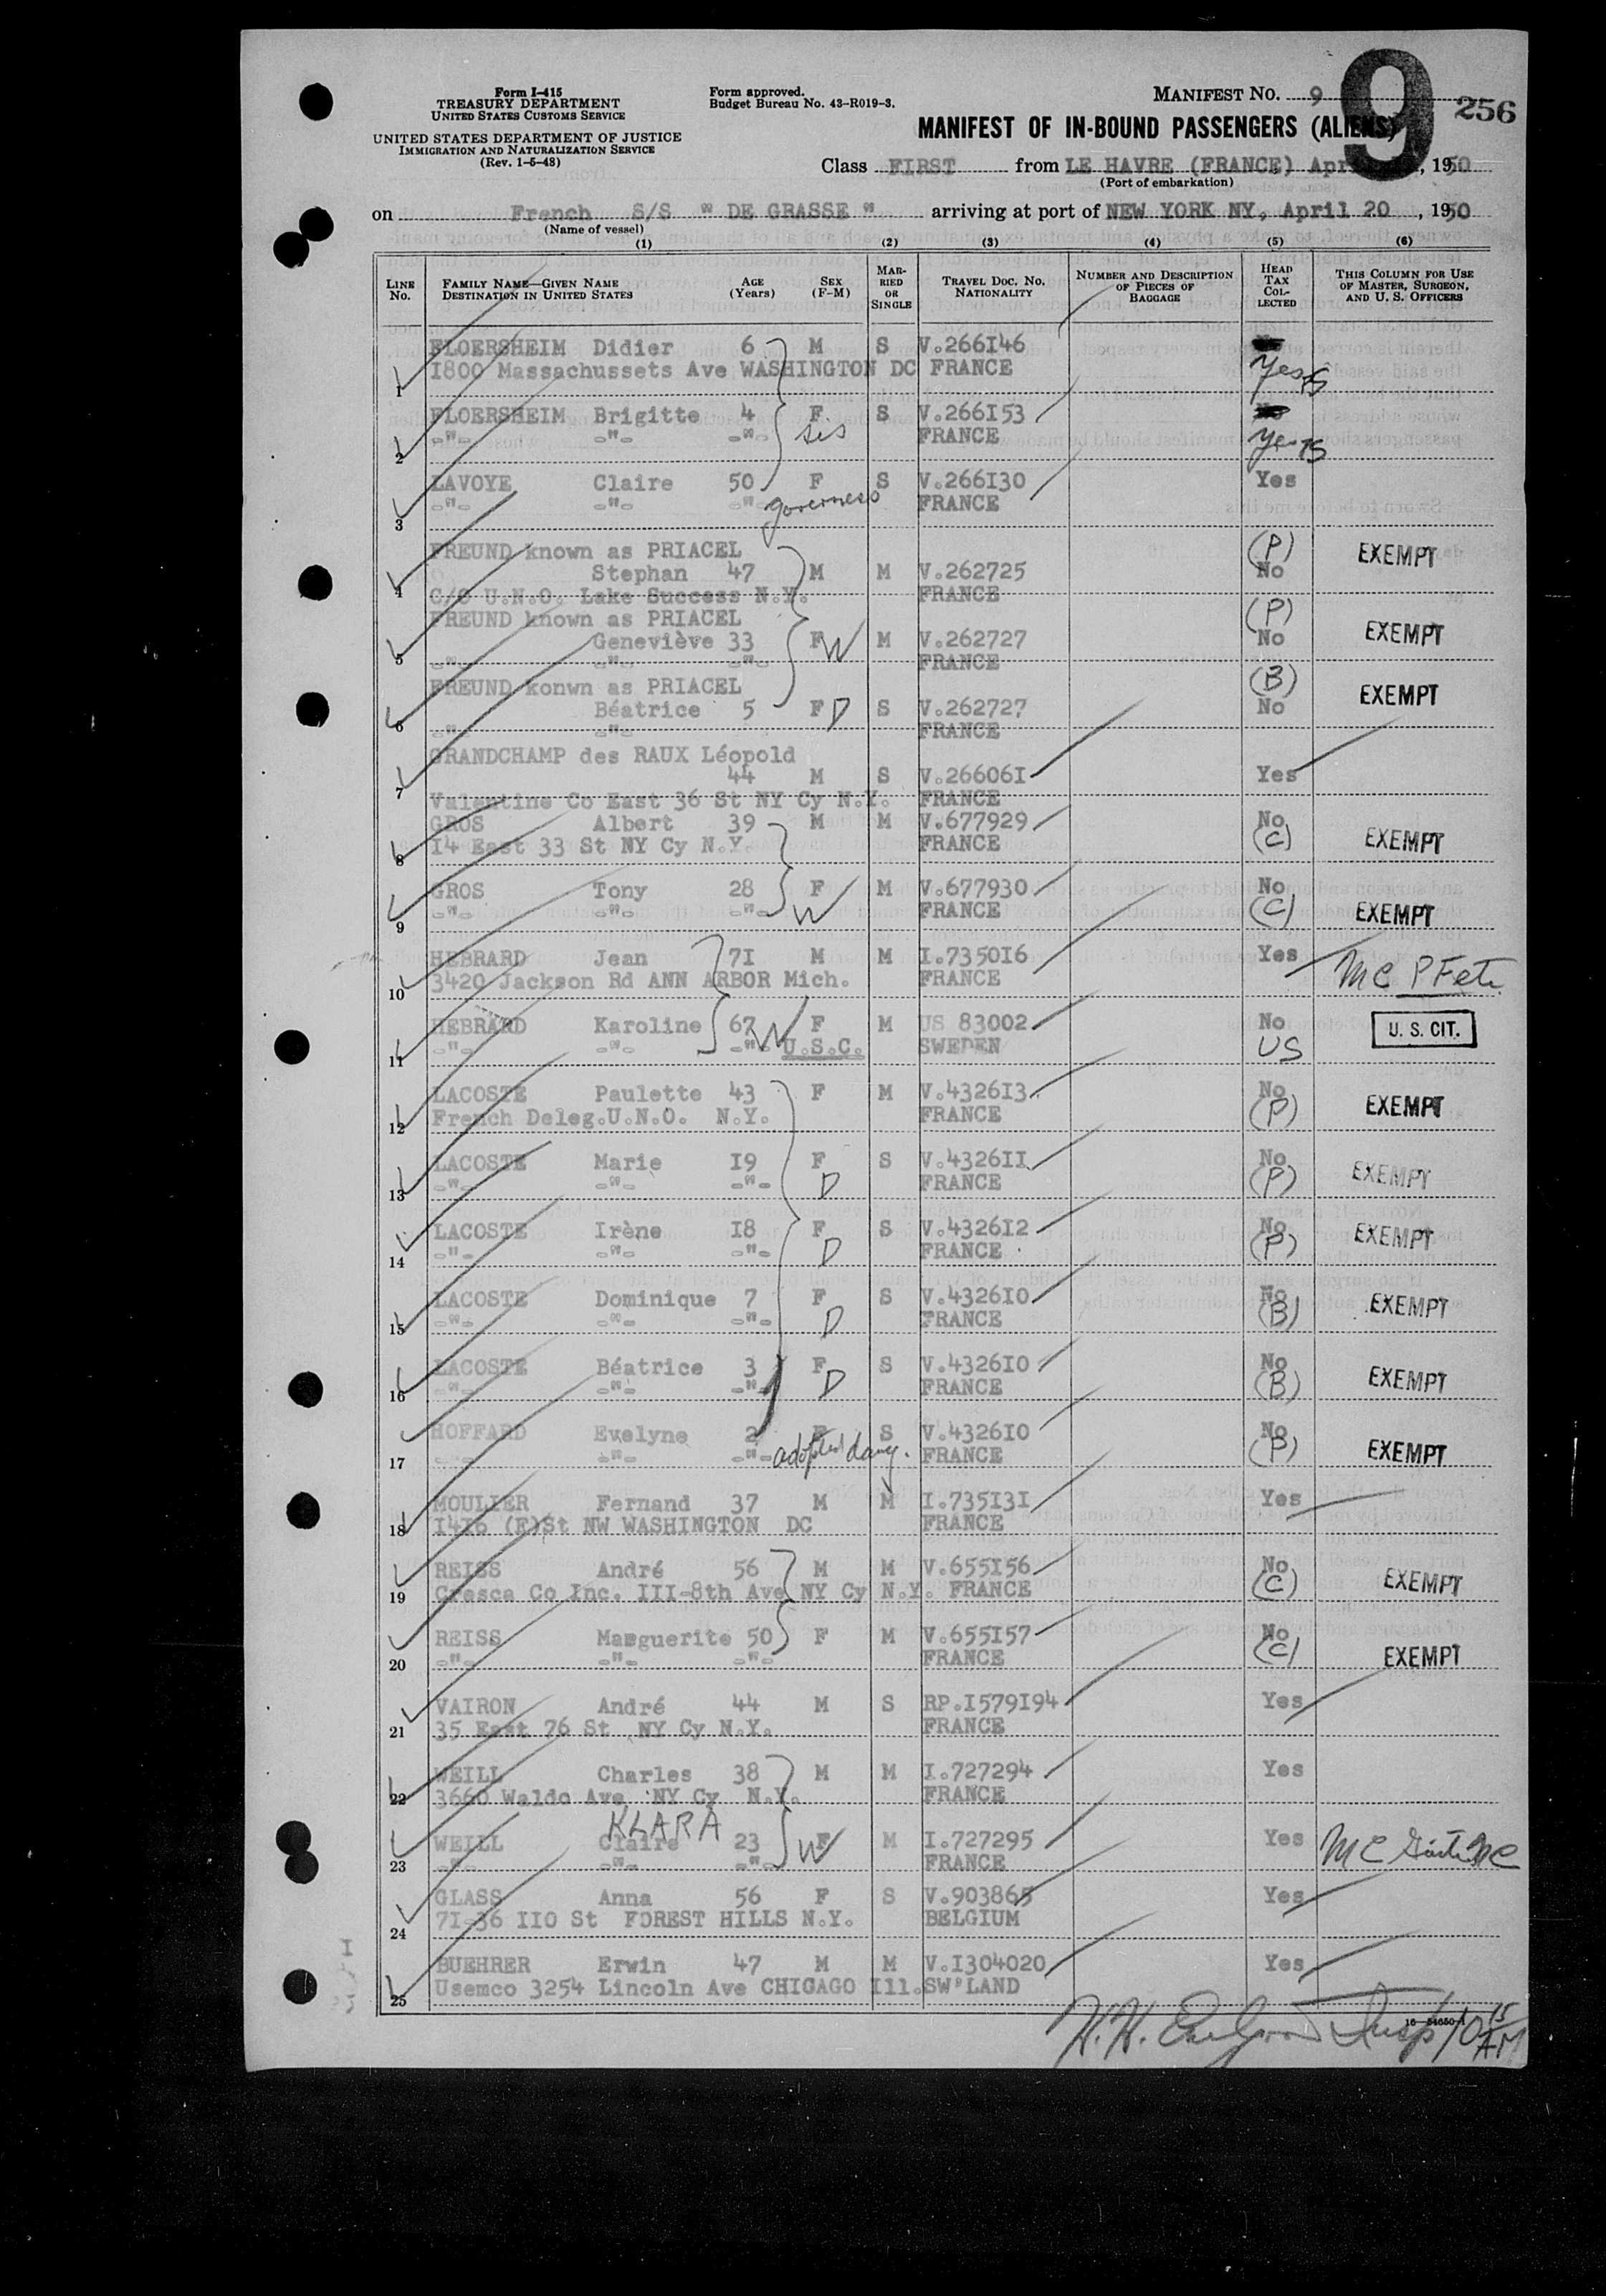 Form I-415
TREASURY DEPARTMENT
UNITED STATES CUSTOMS SERVICE
UNITED STATES DEPARTMENT OF JUSTICE
IMMIGRATION AND NATURALIZATION SERVICE
(Rev. 1-5-48)
Form approved.
Budget Bureau No. 43-R019-3.
MANIFEST NO. 9
9
256
MANIFEST OF IN-BOUND PASSENGERS (ALIENS)
Class FIRST from LE HAVRE (FRANCE) Apr , 1950
(Port of embarkation)
on French S/S " DE GRASSE " arriving at port of NEW YORK NY, April 20 , 1950
(Name of vessel)
(1) (2) (3) (4) (5) (6)
LINE No. FAMILY NAME—GIVEN NAME DESTINATION IN UNITED STATES AGE (Years) SEX (F-M) MARRIED OR SINGLE TRAVEL DOC. NO. NATIONALITY NUMBER AND DESCRIPTION OF PIECES OF BAGGAGE HEAD TAX COLLECTED THIS COLUMN FOR USE OF MASTER, SURGEON, AND U. S. OFFICERS
FLOERSHEIM Didier 6 M S V.266I46
1 I800 Massachussets Ave WASHINGTON DC FRANCE Yes
FLOERSHEIM Brigitte 4 F S V.266I53
2 -"- -"- -"- sis FRANCE Yes
LAVOYE Claire 50 F S V.266I30 Yes
3 -"- -"- -"- governess FRANCE
FREUND known as PRIACEL (P) EXEMPT
Stephan 47 M M V.262725 No
4 C/O U.N.O. Lake Success N.Y. FRANCE
FREUND known as PRIACEL (P)
Geneviève 33 F W M V.262727 No EXEMPT
5 -"- -"- -"- FRANCE
FREUND konwn as PRIACEL (B) EXEMPT
Béatrice 5 F D S V.262727 No
6 -"- -"- FRANCE
GRANDCHAMP des RAUX Léopold
44 M S V.26606I Yes
7 Valentine Co East 36 St NY Cy N.Y. FRANCE
GROS Albert 39 M M V.677929 No
8 I4 East 33 St NY Cy N.Y. FRANCE (C) EXEMPT
GROS Tony 28 F M V.677930 No
9 -"- -"- -"- W FRANCE (C) EXEMPT
HEBRARD Jean 7I M M I.7350I6 Yes
10 3420 Jackson Rd ANN ARBOR Mich. FRANCE MC
HEBRARD Karoline 67 W F M US 83002 No U. S. CIT.
11 -"- -"- -"- U.S.C. SWEDEN US
LACOSTE Paulette 43 F M V.4326I3 No
12 French Deleg.U.N.O. N.Y. FRANCE (P) EXEMPT
LACOSTE Marie I9 F S V.4326II No
13 -"- -"- -"- D FRANCE (P) EXEMPT
LACOSTE Irène I8 F S V.4326I2 No
14 -"- -"- -"- D FRANCE (P) EXEMPT
LACOSTE Dominique 7 F S V.4326I0 No
15 -"- -"- -"- D FRANCE (B) EXEMPT
LACOSTE Béatrice 3 F S V.4326I0 No
16 -"- -"- -"- D FRANCE (B) EXEMPT
HOFFARD Evelyne 2 F S V.4326I0 No
17 -"- -"- -"- adopted daug. FRANCE (P) EXEMPT
MOULIER Fernand 37 M M I.735I3I Yes
18 I4I6 (F)St NW WASHINGTON DC FRANCE
REISS André 56 M M V.655I56 No
19 Cresca Co Inc. III-8th Ave NY Cy N.Y. FRANCE (C) EXEMPT
REISS Marguerite 50 F M V.655I57 No
20 -"- -"- -"- FRANCE (C) EXEMPT
VAIRON André 44 M S RP.I579I94 Yes
21 35 East 76 St NY Cy N.Y. FRANCE
WEILL Charles 38 M M I.727294 Yes
22 3660 Waldo Ave NY Cy N.Y. FRANCE
KLARA
WEILL Claire 23 F W M I.727295 Yes MC
23 -"- -"- -"- FRANCE
GLASS Anna 56 F S V.903865 Yes
24 7I-36 IIO St FOREST HILLS N.Y. BELGIUM
BUEHRER Erwin 47 M M V.I304020 Yes
25 Usemco 3254 Lincoln Ave CHIGAGO Ill. SW'LAND
16—54650-1
H.H. Insp 10 15 AM